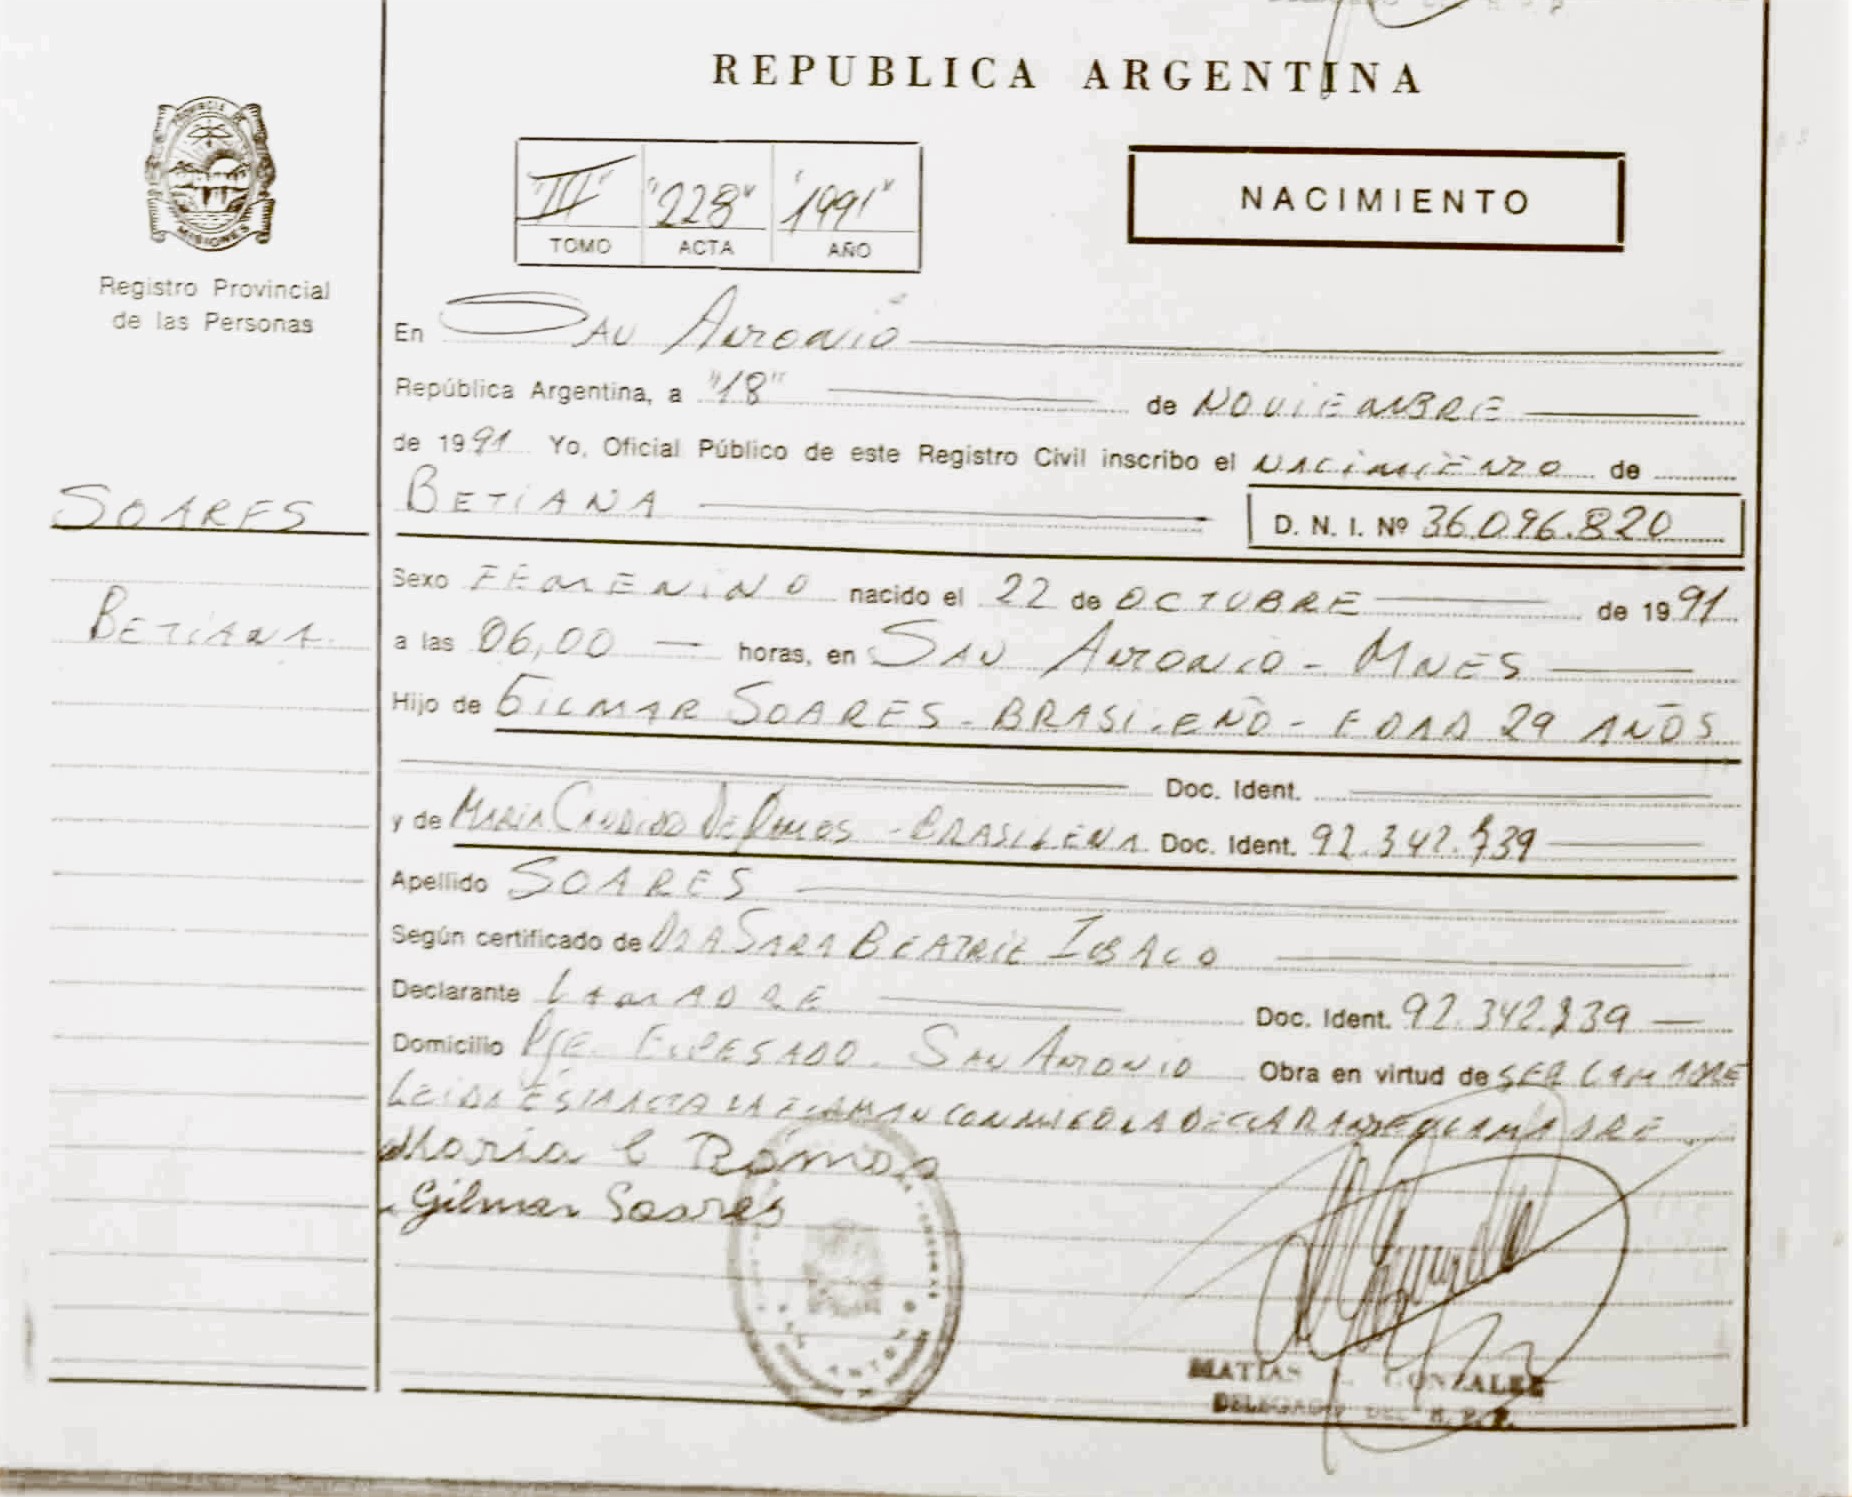 REPUBLICA ARGENTINA
PROVINCIA DE
MISIONES
Registro Provincial
de las Personas
"III" "228" "1991"
TOMO ACTA AÑO
NACIMIENTO
En SAN ANTONIO
República Argentina, a "18" de NOVIEMBRE
de 1991 Yo, Oficial Público de este Registro Civil inscribo el NACIMIENTO de
SOARES
BETIANA
BETIANA D. N. I. Nº 36.096.820
Sexo FEMENINO nacido el 22 de OCTUBRE de 1991
a las 06,00 horas, en SAN ANTONIO - MNES
Hijo de GILMAR SOARES - BRASILEÑO - EDAD 29 AÑOS
Doc. Ident.
y de MARIA CANDIDO DE RAMOS - BRASILEÑA Doc. Ident. 92.342.739
Apellido SOARES
Según certificado de DRA SARA BEATRIZ
Declarante LA MADRE Doc. Ident. 92.342.739
Domicilio PJE. SAN ANTONIO Obra en virtud de SER LA MADRE
LEIDA ESTA ACTA LA FIRMAN CONMIGO LA DECLARANTE LA MADRE
Maria C Ramos
Gilmar Soares
SAN ANTONIO
MATIAS GONZALEZ
DELEGADO DEL R. P. P.